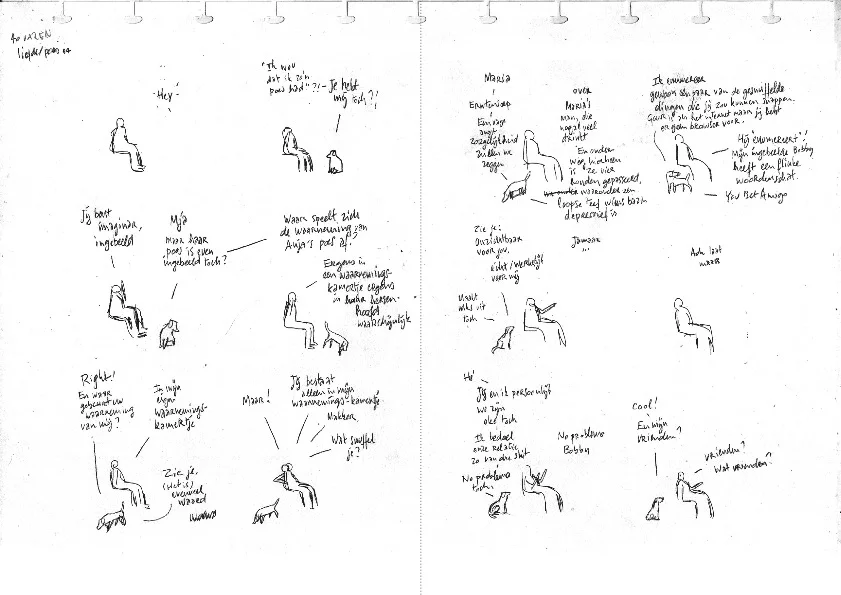 - Hey -
"Ik wou
dat ik zo'n
poes had" ?! - Je hebt
mij toch ?!
Jij bent
imaginair,
ingebeeld
Mja
maar haar
poes is even
ingebeeld toch?
Waar speelt zich
de waarneming van
Anja's poes af?
Ergens in
een waarnemings-
kamertje ergens
in haar hersen-
hoofd
waarschijnlijk
Right!
En waar
gebeurt uw
waarneming
van mij?
In mijn
waarnemings-
kamertje
Zie je.
(Het is)
evenveel
waard
Maar!
Jij bestaat
alleen in mijn
waarnemings-kamertje
Makker.
Wat snuffel
je?
Maria
Ermteniep
Een vage
angst
zorgelijkheid
zullen we
zeggen
over
Maria's
man, die
nogal veel
drinkt
En onder
weg hierheen
is ze vier
honden gepasseerd,
waaronder een
loopse teef wiens baan
depressief is
Ik enumereer
gewoon een paar van de gesnuffelde
dingen die jij zou kunnen snappen.
Geur is als het internet maar jij hebt
er geen browser voor.
Hij 'enumereert'!
Mijn ingebeelde Bobby
heeft een flinke
woordenschat.
You Bet Amigo
Zie je:
onzichtbaar
voor jou.
echt/werkelijk
voor mij
Jamaar
...
Maakt
niks uit
toch
Ach laat
maar
Hé
Jij en ik persoonlijk
we zijn
oké toch
Ik bedoel
onze relatie
zo van die shit
No problemo
toch
No problemo
Bobby
Cool!
En mijn
vrienden?
Vrienden?
Wat vrienden?